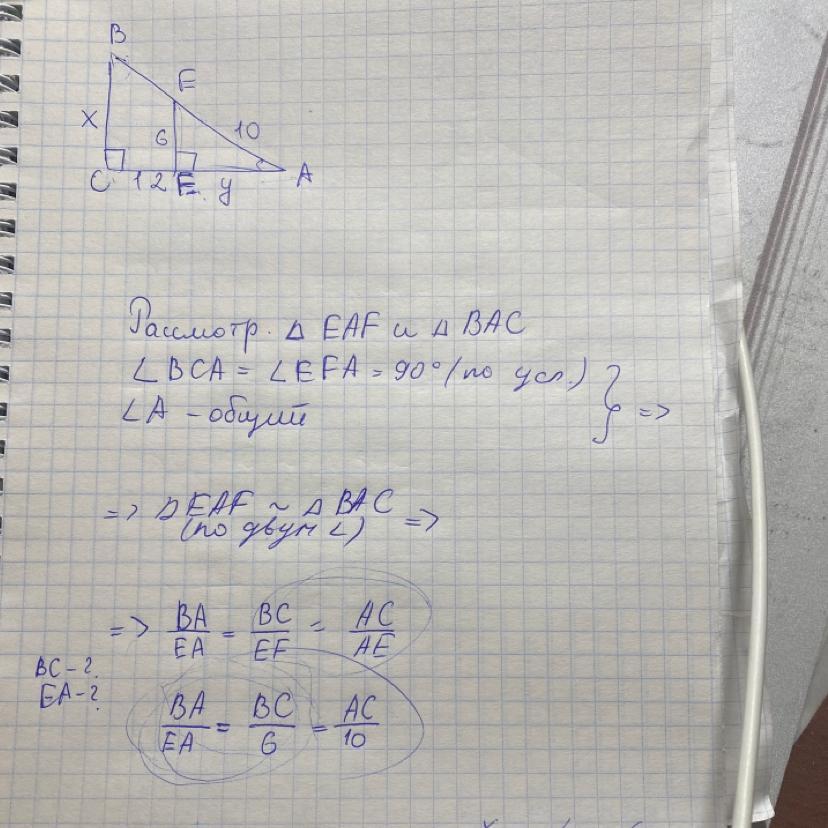 B
F
x
6
10
C
12
E
y
A
Рассмотр. △ EAF и △ BAC
∠BCA = ∠EFA = 90° (по усл.) } =>
∠A - общий
=> △EAF ~ △ BAC =>
(по двум ∠)
=> BA/EA = BC/EF = AC/AE
BC-?
EA-?
BA/EA = BC/6 = AC/10